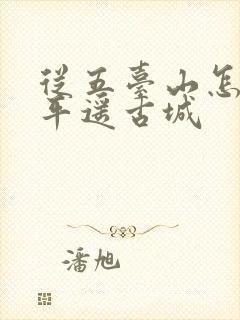 從五臺山怎
平遥古城
潘旭